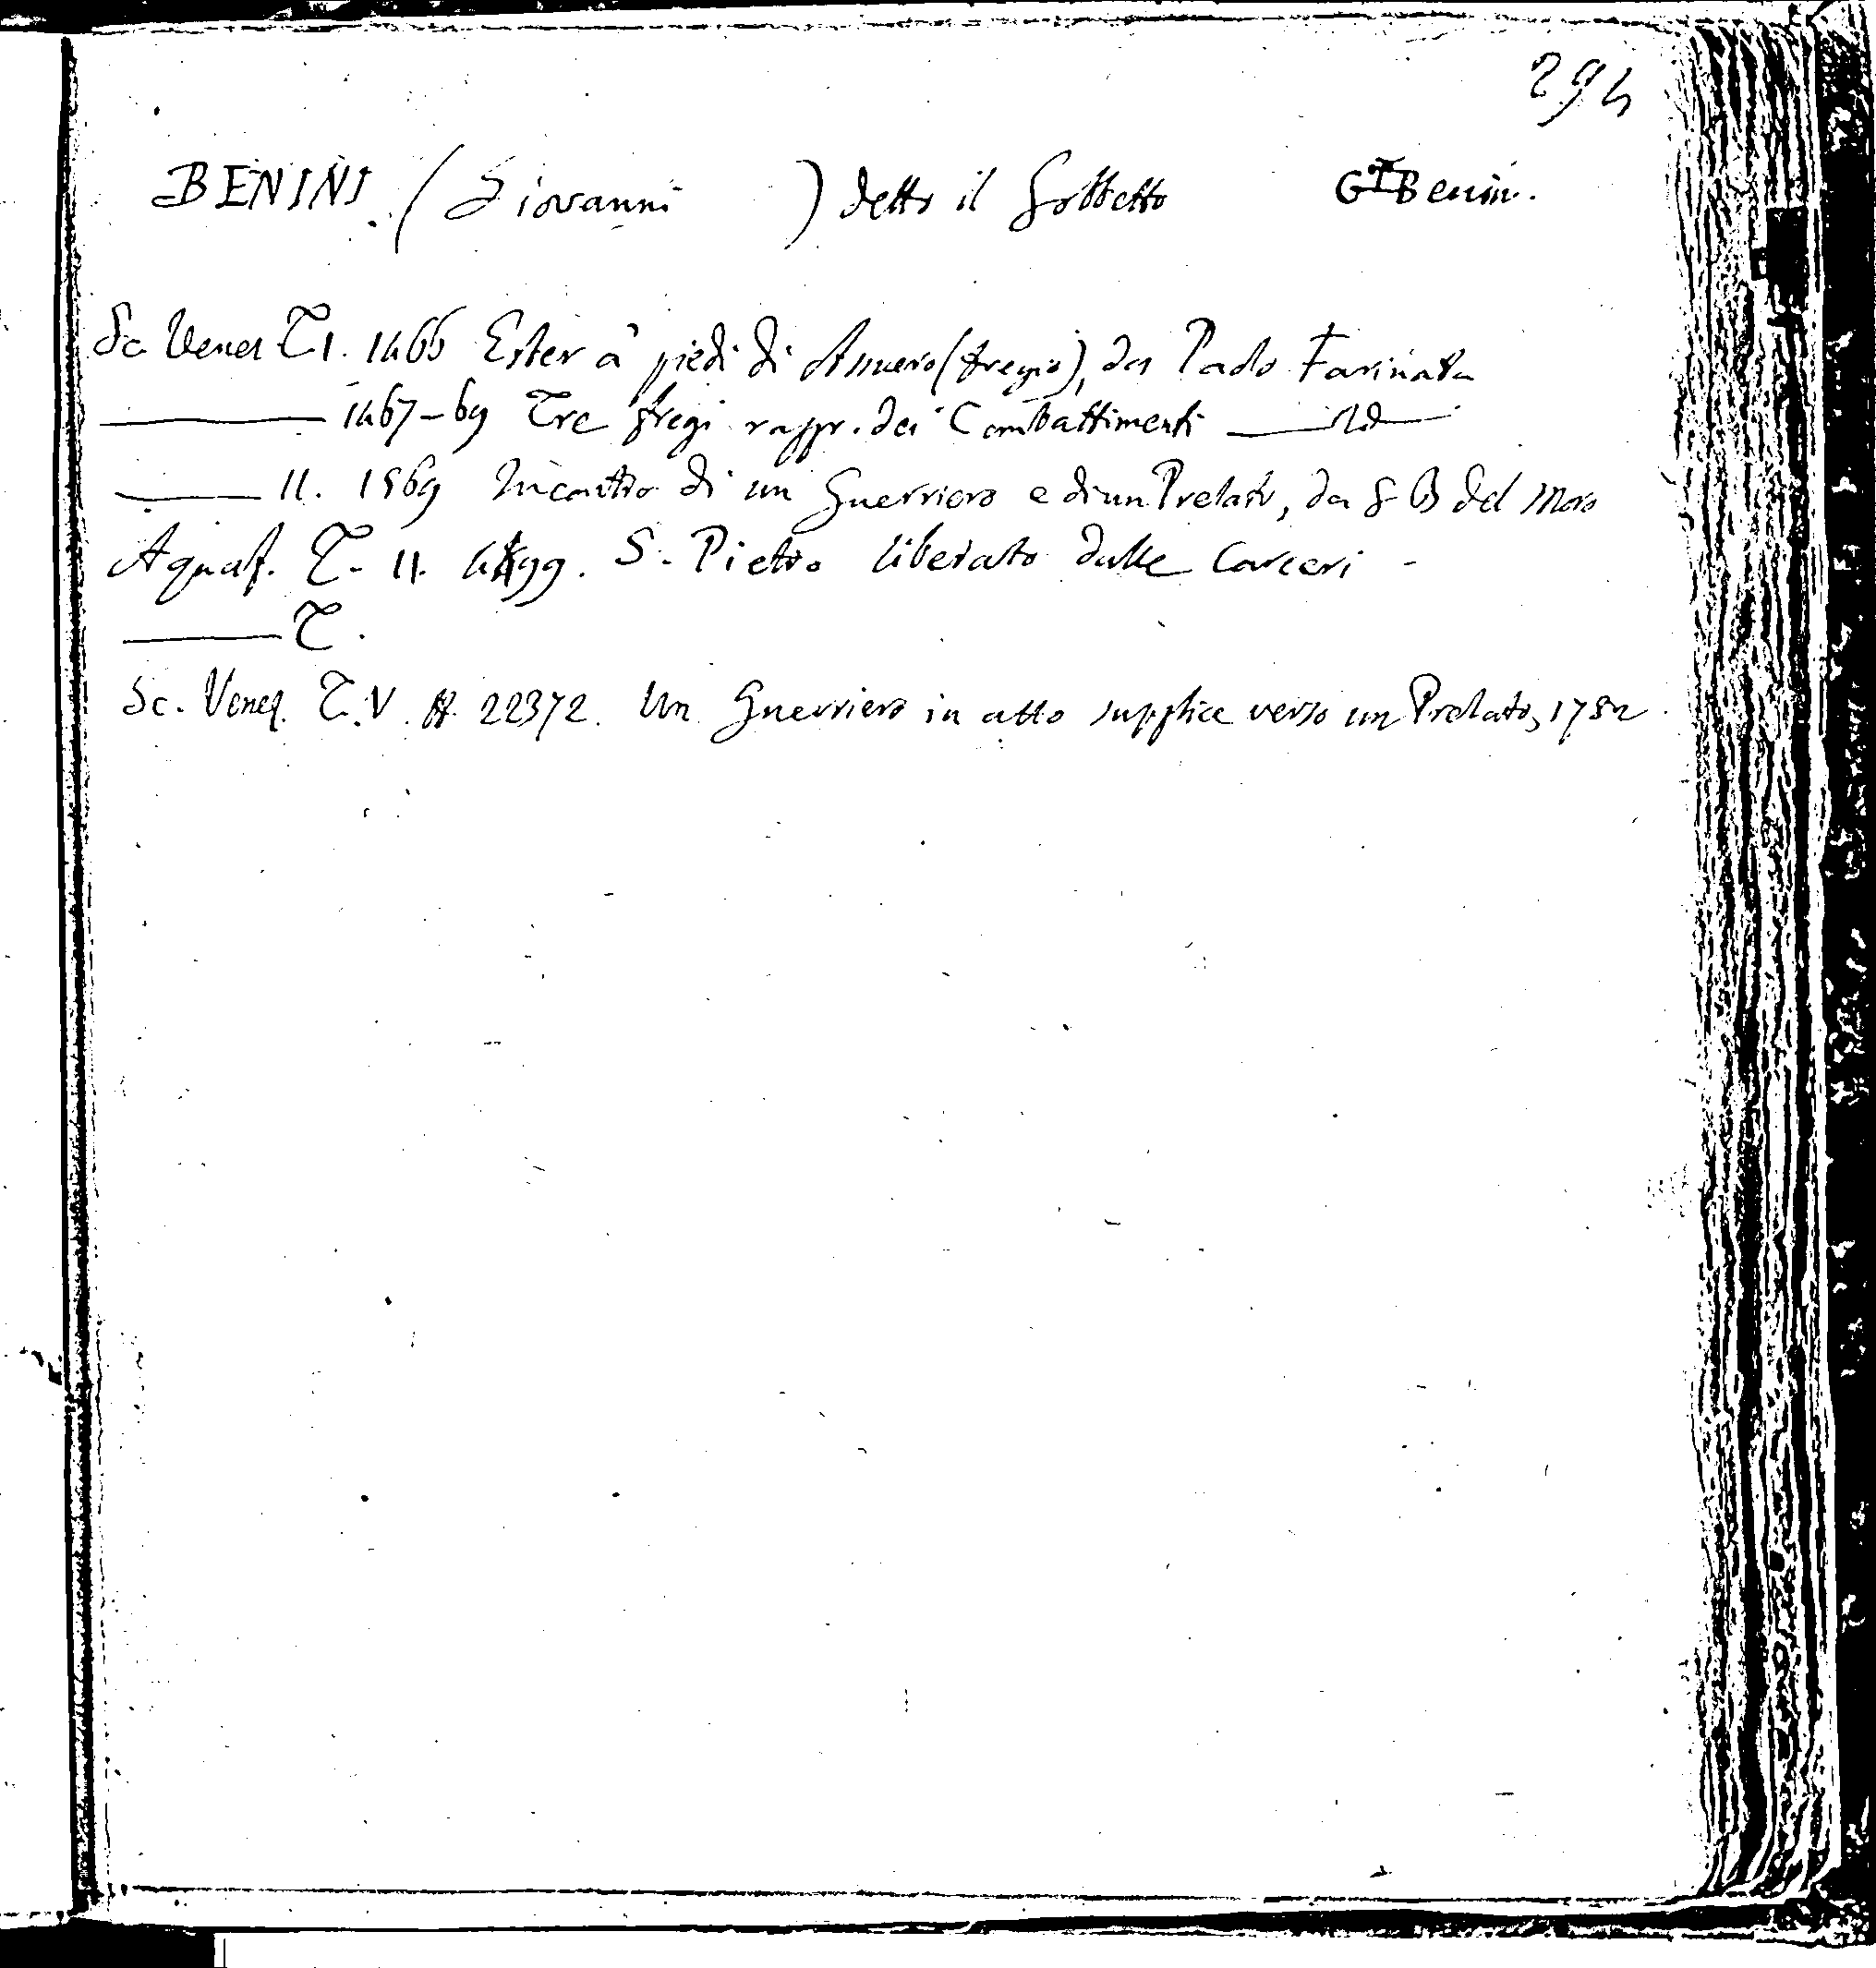 294
BENINI (Giovanni ) detto il Gobbetto G I Benin.
Sc. Venez T. I. 1466 Ester a' piedi di Assuero (fregio), da Paolo Farinata
——— 1467-69 Tre fregi rappr. dei Combattimenti — Id —
——— II. 1569 Incontro di un Guerriero e di un Prelato, da G B del Moro
Aquaf. T. II. S. Pietro liberato dalle Carceri -
——— T.
Sc. Venez. T. V. 22372. Un Guerriero in atto supplice verso un Prelato, 1782